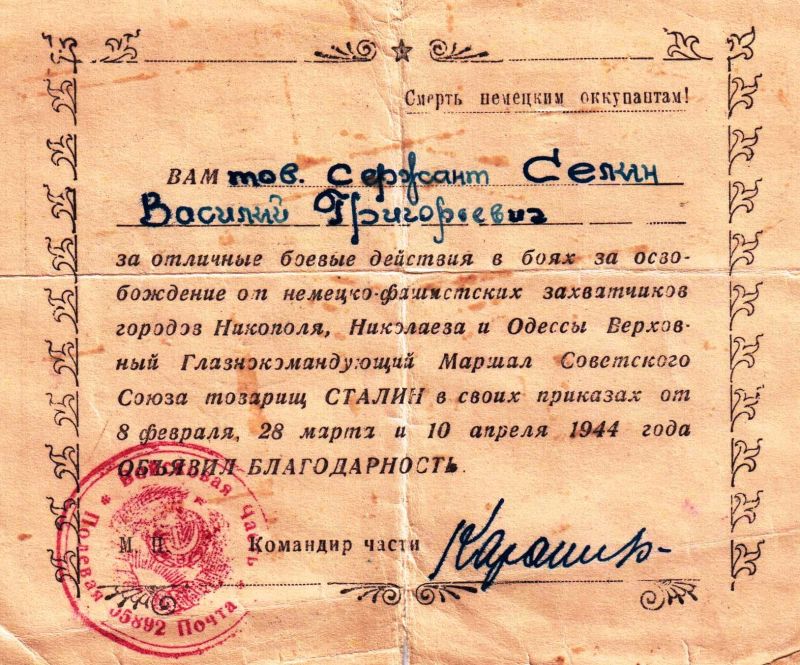 Смерть немецким оккупантам!
ВАМ тов. сержант Селин
Василий Григорьевич
за отличные боевые действия в боях за осво-
бождение от немецко-фашистских захватчиков
городов Никополя, Николаева и Одессы Верхов-
ный Главнокомандующий Маршал Советского
Союза товарищ СТАЛИН в своих приказах от
8 февраля, 28 марта и 10 апреля 1944 года
ОБЪЯВИЛ БЛАГОДАРНОСТЬ.
М. П. Командир части
Войсковая часть
Полевая Почта